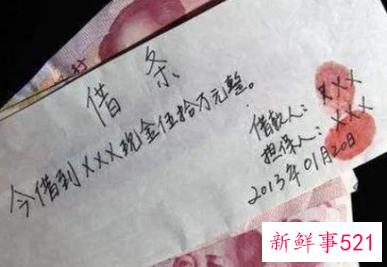 借条
今借到XXX现金伍拾万元整。
借款人：XXX
担保人：XXX
2013年01月20日
新鲜事521